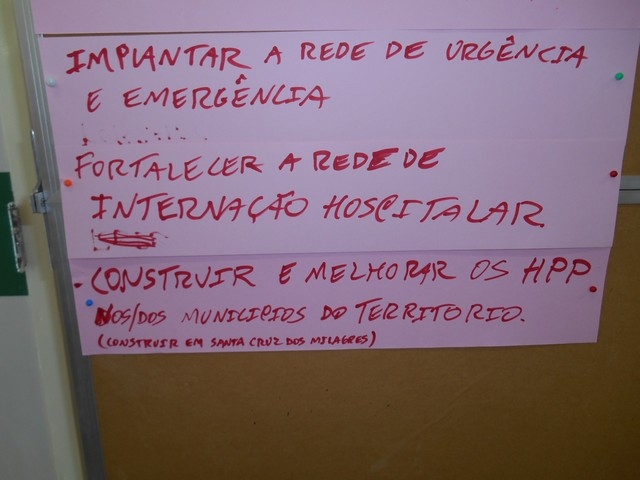 IMPLANTAR A REDE DE URGÊNCIA
E EMERGÊNCIA
FORTALECER A REDE DE
INTERNAÇÃO HOSPITALAR
- CONSTRUIR E MELHORAR OS HPP
NOS/DOS MUNICIPIOS DO TERRITORIO.
(CONSTRUIR EM SANTA CRUZ DOS MILAGRES)